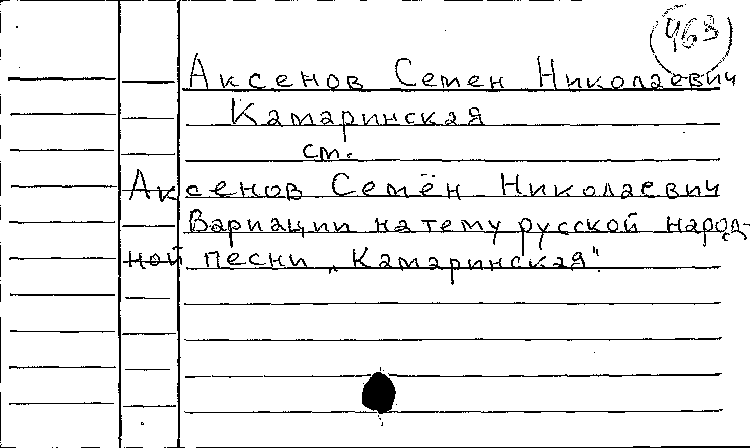 463
Аксенов Семен Николаевич
Камаринская
см.
Аксенов Семён Николаевич
Вариации на тему русской народ-
ной песни „Камаринская"